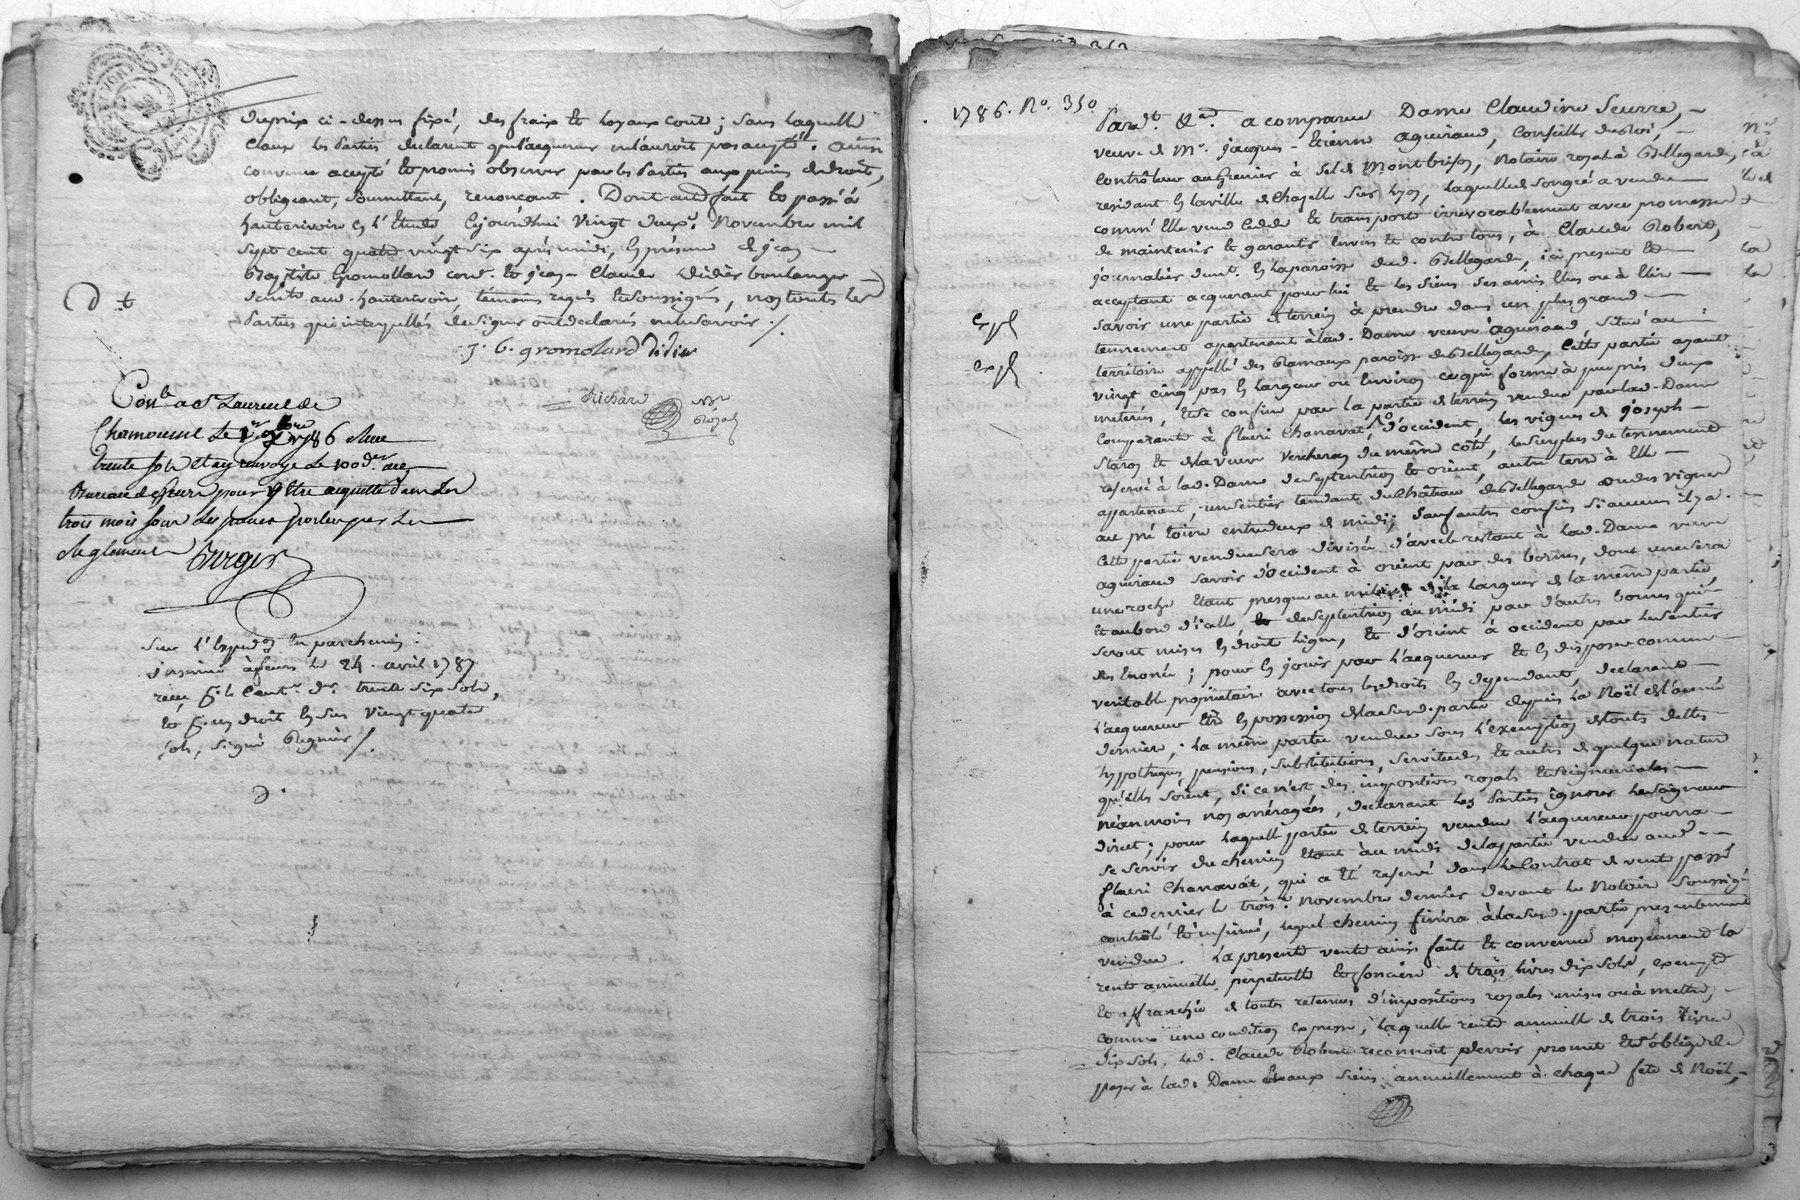 du prix ci-dessus fixé, des fraix et loyaux cout; sans laquelle
clause les parties declarent que l'acquereur n'auroit pas accepté. ainsi
convenu accepté et promis observer par les parties aux peines de droit,
obligeant, soumettant, renoncant. Dont acte fait et passé à
hauterivoir en l'Etude Cejourdhui vingt deux.e Novembre mil
sept cent quatre vingt six après midi, en présence de jean
Baptiste Gromollard cord. et jean-Claude didier boulanger
aud. hauterivoir, témoins requis et soussignés, non les
parties qui interpellés de signer ont declarés ne le savoir ./
j. b. gromolard Didier
Richard
Nre
Royal
Con.lé a S.t Laurent de
Chamousset le 1786
trente sols et ay renvoyé le 100.e den.er au
Bureau de feurs pour y Etre acquitté dans les
trois mois sous les peines portées par le
Reglement Burger
sur l'Exped.on en parchemin :
insinué à feurs le 24. avril 1787
recu p.r le Cent.e d.er trente six sols,
et p.r un droit en sus vingt quatre
sols, signé Regnier /.
1786. No. 350
Expé
Expé
Pard.t &a. a comparu Dame Claudine Seurre,
veuve de Mr. jacques-Etienne aguiraud, Conseiller du Roi,
Contrôleur au Grenier à sel de Montbrison, Notaire royal à Bellegarde,
residant en la ville de Chazelle sur Lyon, laquelle de son gré a vendu
comm'elle vend cede et transporte irrévocablement avec promesse
de maintenir et garantir envers et contre tous, à Claude Robert,
journalier demt. en la paroisse dud. Bellegarde, ici present et
acceptant acquerant pour lui et les siens ses amis élus ou à élir
savoir une partie de terrein à prendre dans un plus grand
tennement appartenant à lad. Dame veuve aguiraud, situé au
territoire appellé des Rameaux paroisse de Bellegarde, Cette partie ayant
vingt cinq pas en largeur ou Environ ce qui forme à peu près deux
meterés, et se confine par la partie de terrein vendue par lad. Dame
comparante à fleuri Chanavat, d'occident, les vignes de joseph
et de la veuve du même côté, le surplus du tennement
reservé à lad. Dame de septentrion et orient, autre terre à Elle
appartenant, un sentier tendant du château de Bellegarde ou des vignes
au pré entre deux de midi; sauf autres confins si aucuns il y a.
Cette partie vendue sera divisée d'avec le restant à lad. Dame veuve
aguiraud savoir d'occident à orient par des bornes, dont une sera
une roche étant presque au milieu de la largeur de la même partie
et au bord d'icelle de septentrion au midi par d'autres bornes qui
seront mises en droit ligne, et d'orient à occident par le sentier
des énoncé; pour en jouir par l'acquereur et en disposer comme
veritable propriétaire avec tous les droits en dependant, declarant
l'acquereur être en possession de la susd. partie depuis la Noël de l'année
derniere; la même partie vendue sous l'exemption de toutes dettes
hypotheques, pensions, substitutions, servitudes et autres de quelque nature
qu'elles soient, si ce n'est des impositions royales et seigneuriales
néanmoins non arréragées, declarant les parties ignorer le seigneur
direct; pour laquelle partie de terrein vendue l'acquereur pourra
se servir du chemin étant au midi de la partie vendue aud.
fleuri Chanavat, qui a été reservé dans le Contrat de vente passé
à ce dernier le trois novembre dernier devant le Notaire soussigné
contrôlé et insinué, lequel chemin finira à la susd. partie presentement
vendue. La presente vente ainsi faite et convenue moyennant la
rente annuelle, perpetuelle et fonciere de trois livres dix sols, exempte
et affranchie de toutes retenues d'impositions royales mises ou à mettre,
comme une condition expresse, laquelle rente annuelle de trois livres
dix sols, led. Claude Robert reconnoit devoir promet et s'oblige de
payer à lad. Dame et aux siens annuellement à chaque fete de Noël,